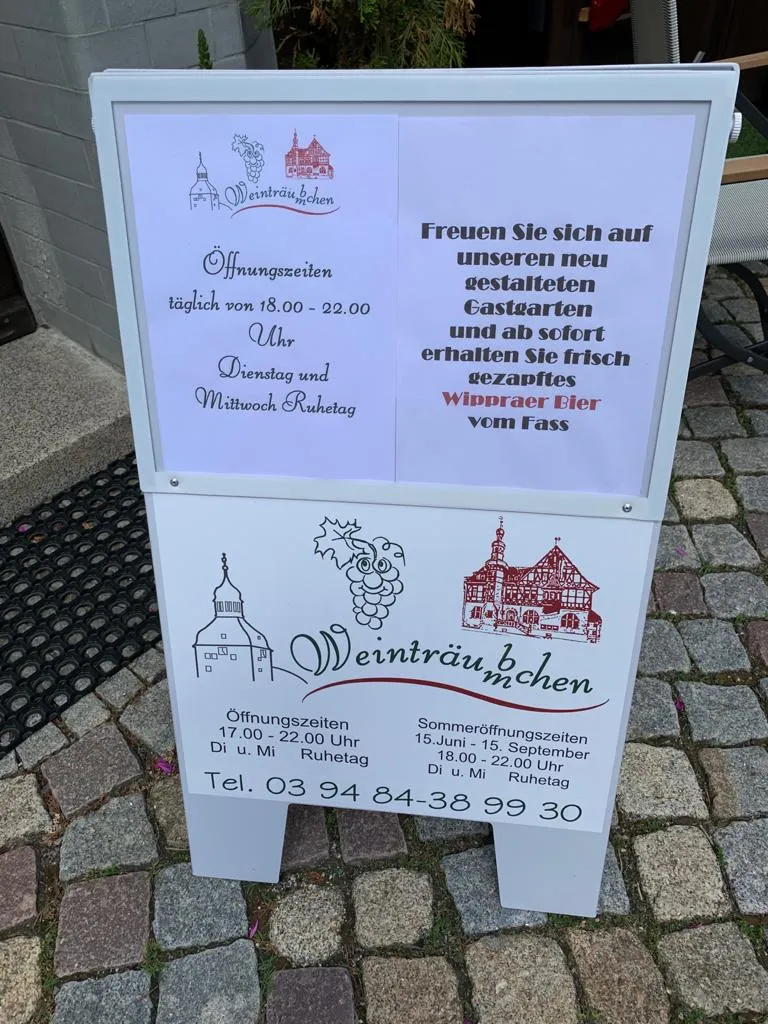 Weinträubmchen
Öffnungszeiten
täglich von 18.00 - 22.00
Uhr
Dienstag und
Mittwoch Ruhetag
Freuen Sie sich auf
unseren neu
gestalteten
Gastgarten
und ab sofort
erhalten Sie frisch
gezapftes
Wippraer Bier
vom Fass
Weinträubmchen
Öffnungszeiten
17.00 - 22.00 Uhr
Di u. Mi Ruhetag
Sommeröffnungszeiten
15.Juni - 15. September
18.00 - 22.00 Uhr
Di u. Mi Ruhetag
Tel. 03 94 84-38 99 30